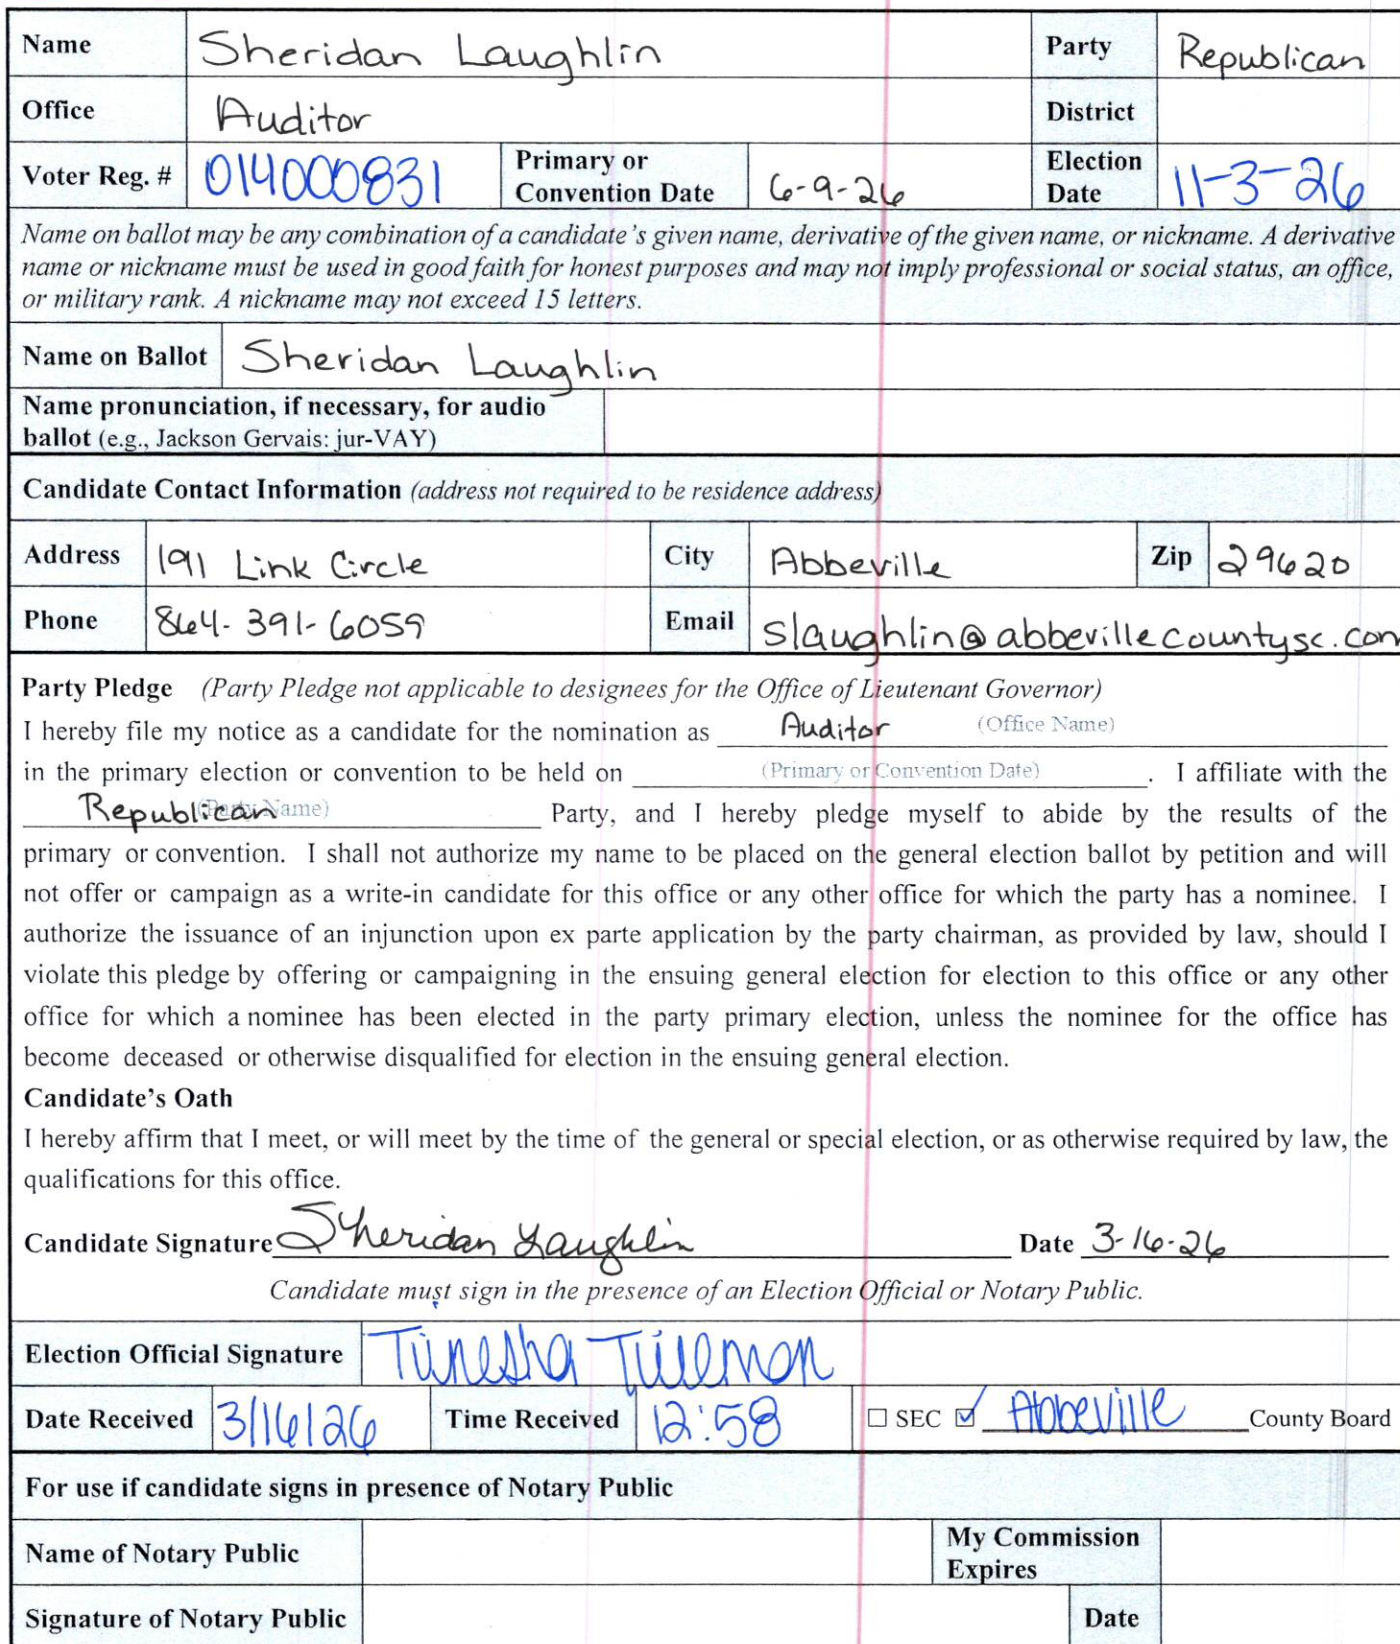 Name Sheridan Laughlin Party Republican
Office Auditor District
Voter Reg. # 014000831 Primary or Convention Date 6-9-26 Election Date 11-3-26
Name on ballot may be any combination of a candidate's given name, derivative of the given name, or nickname. A derivative
name or nickname must be used in good faith for honest purposes and may not imply professional or social status, an office,
or military rank. A nickname may not exceed 15 letters.
Name on Ballot Sheridan Laughlin
Name pronunciation, if necessary, for audio
ballot (e.g., Jackson Gervais: jur-VAY)
Candidate Contact Information (address not required to be residence address)
Address 191 Link Circle City Abbeville Zip 29620
Phone 864-391-6059 Email slaughlin@abbevillecountysc.com
Party Pledge (Party Pledge not applicable to designees for the Office of Lieutenant Governor)
I hereby file my notice as a candidate for the nomination as Auditor (Office Name)
in the primary election or convention to be held on (Primary or Convention Date). I affiliate with the
Republican (Party Name) Party, and I hereby pledge myself to abide by the results of the
primary or convention. I shall not authorize my name to be placed on the general election ballot by petition and will
not offer or campaign as a write-in candidate for this office or any other office for which the party has a nominee. I
authorize the issuance of an injunction upon ex parte application by the party chairman, as provided by law, should I
violate this pledge by offering or campaigning in the ensuing general election for election to this office or any other
office for which a nominee has been elected in the party primary election, unless the nominee for the office has
become deceased or otherwise disqualified for election in the ensuing general election.
Candidate's Oath
I hereby affirm that I meet, or will meet by the time of the general or special election, or as otherwise required by law, the
qualifications for this office.
Candidate Signature Sheridan Laughlin Date 3-16-26
Candidate must sign in the presence of an Election Official or Notary Public.
Election Official Signature
Date Received 3/16/26 Time Received 12:58 ☐ SEC ☑ Abbeville County Board
For use if candidate signs in presence of Notary Public
Name of Notary Public My Commission Expires
Signature of Notary Public Date